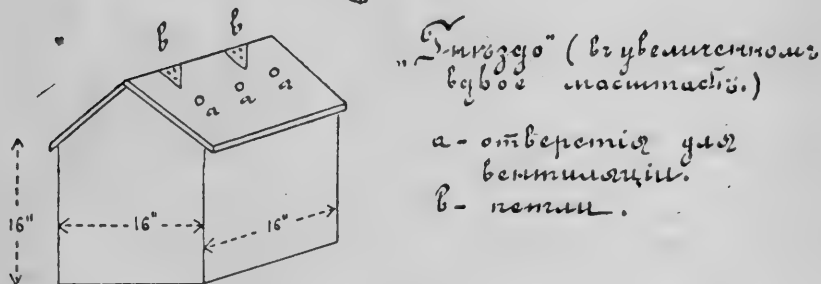 в в
а а а
16" 16" 16"
„Гнѣздо" (въ увеличенномъ
вдвое масштабѣ.)
а - отверстія для
вентиляціи.
в - петли.